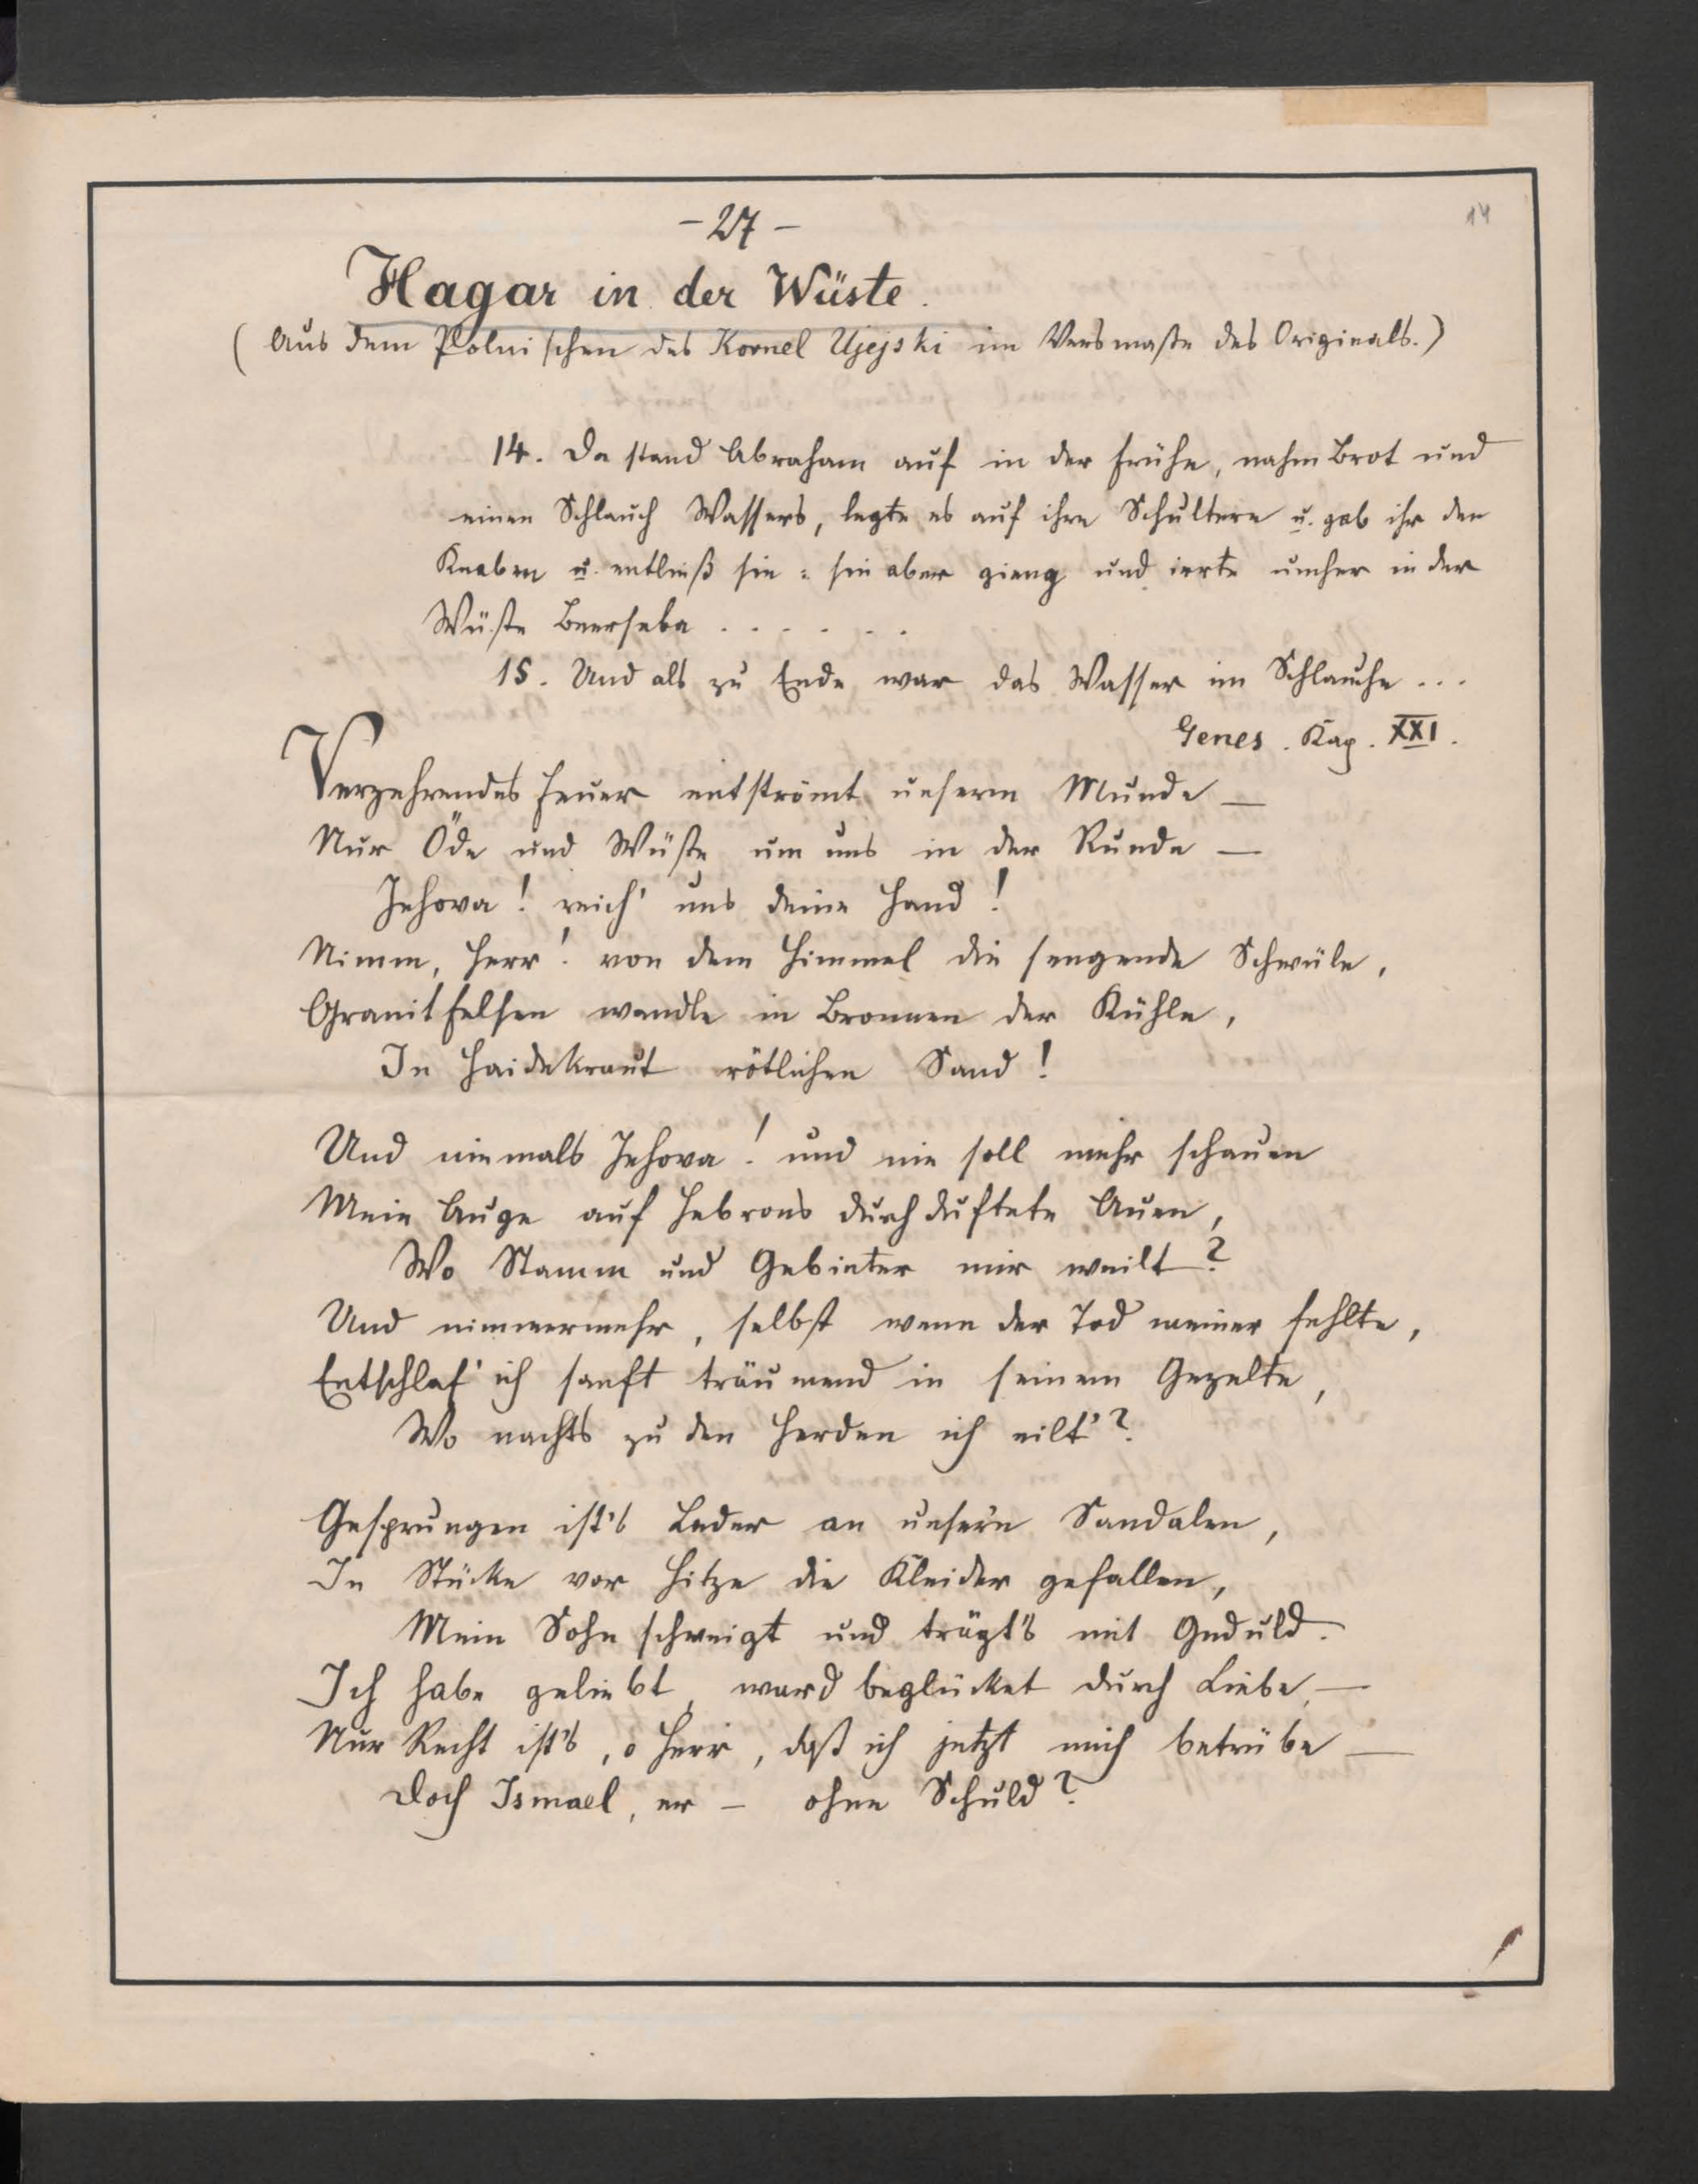 14
- 27 -
Hagar in der Wüste.
(Aus dem Polnischen des Kornel Ujejski im Versmaße des Originals.)
14. Da stand Abraham auf in der Frühe, nahm Brot und
einen Schlauch Wassers, legte es auf ihre Schultern u. gab ihr den
Knaben u. entließ sie: sie aber gieng und irrte umher in der
Wüste Beerseba . . . . . .
15. Und als zu Ende war das Wasser im Schlauche ...
Genes. Kap. XXI.
Verzehrendes Feuer entströmt unserm Munde —
Nur Öde und Wüste um uns in der Runde —
Jehova! reich' uns deine Hand!
Nimm, Herr! von dem Himmel die sengende Schwüle,
Granitfelsen wandle in Bronnen der Kühle,
In Haidekraut rötlichen Sand!
Und niemals Jehova! und nie soll mehr schauen
Mein Auge auf Hebrons durchduftete Auen,
Wo Stamm und Gebieter mir weilt?
Und nimmermehr, selbst wenn der Tod meiner fehlte,
Entschlaf' ich sanft träumend in seinem Gezelte,
Wo nachts zu den Herden ich eilt'?
Gesprungen ist's Leder an unsern Sandalen,
In Stücke vor Hitze die Kleider gefallen,
Mein Sohn schweigt und trägt's mit Geduld.
Ich habe geliebt, ward beglücket durch Liebe, —
Nur Recht ist's, o Herr, daß ich jetzt mich betrübe —
Doch Ismael, er – ohne Schuld?